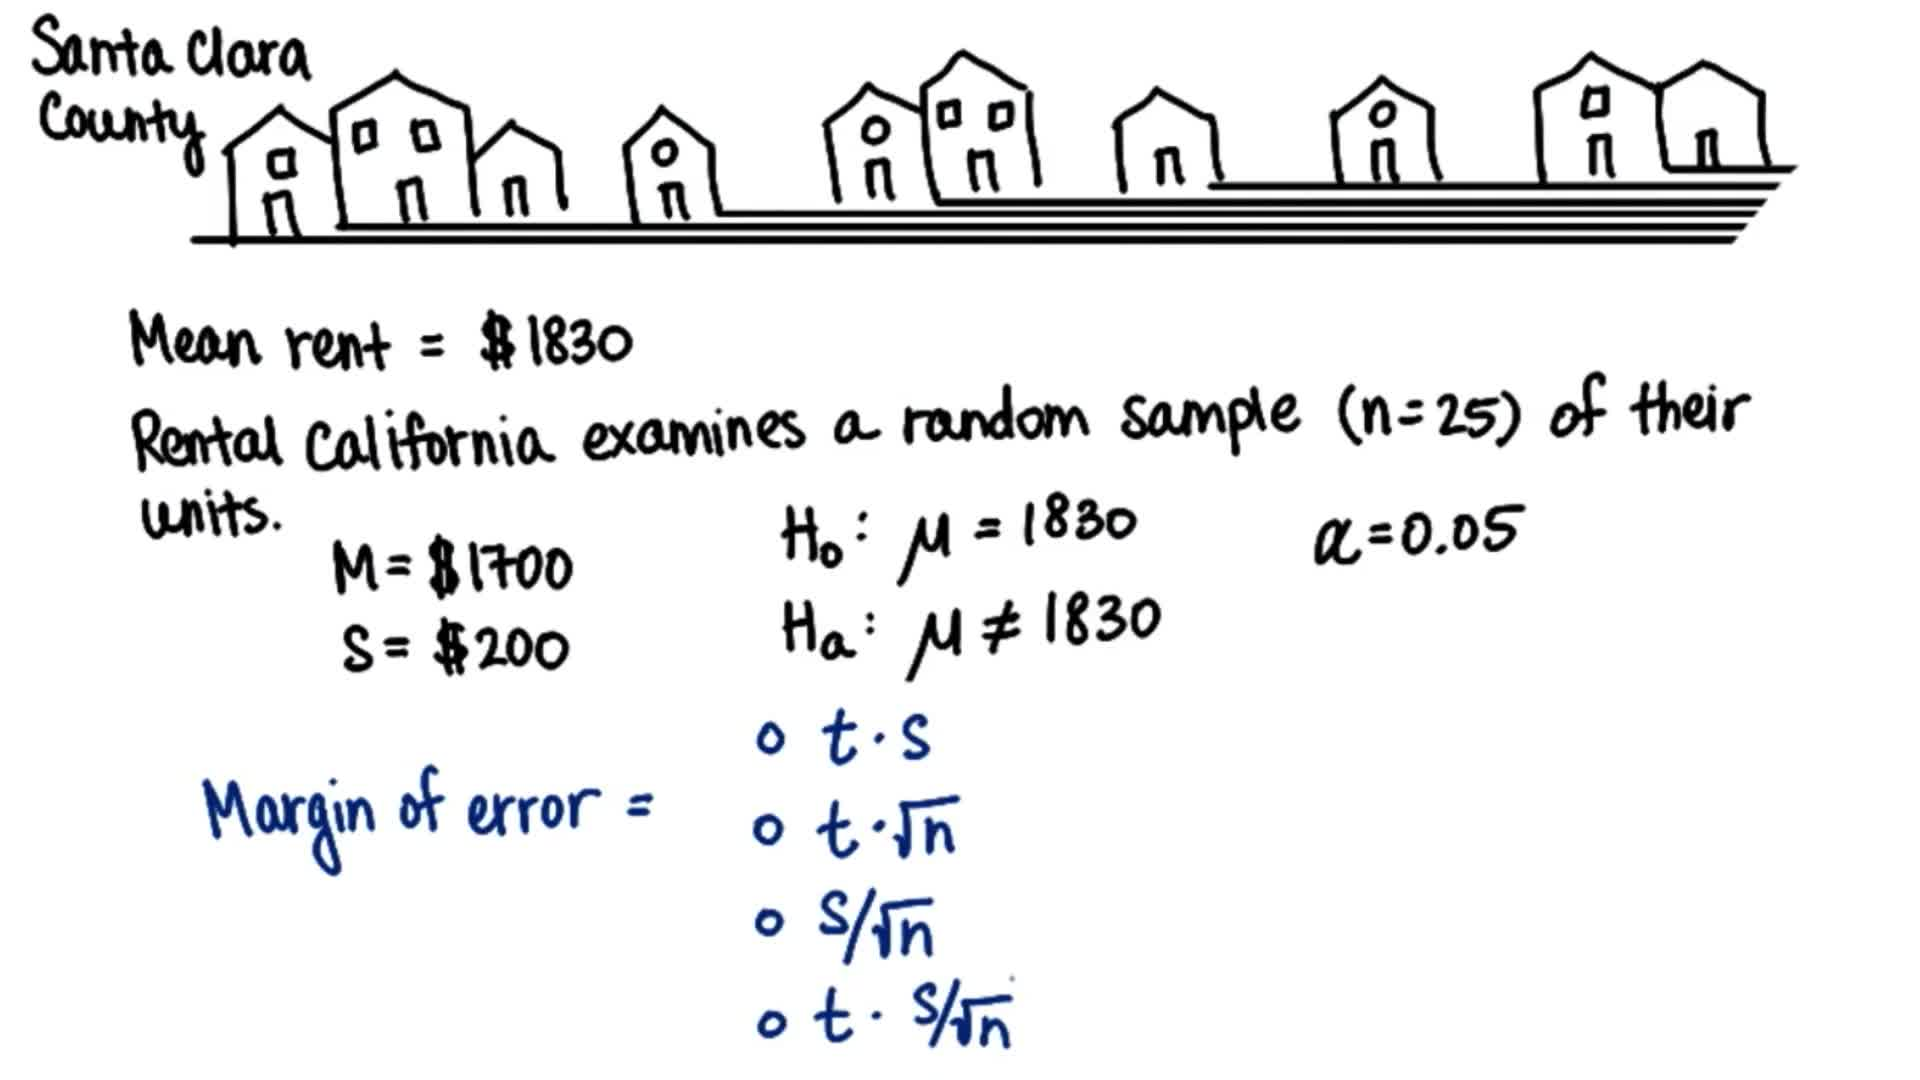 Santa Clara
County
Mean rent = $1830
Rental California examines a random sample (n=25) of their
units.
M = $1700
S = $200
H₀: μ = 1830
Hₐ: μ ≠ 1830
α = 0.05
Margin of error =
o t · s
o t · √n
o s/√n
o t · s/√n